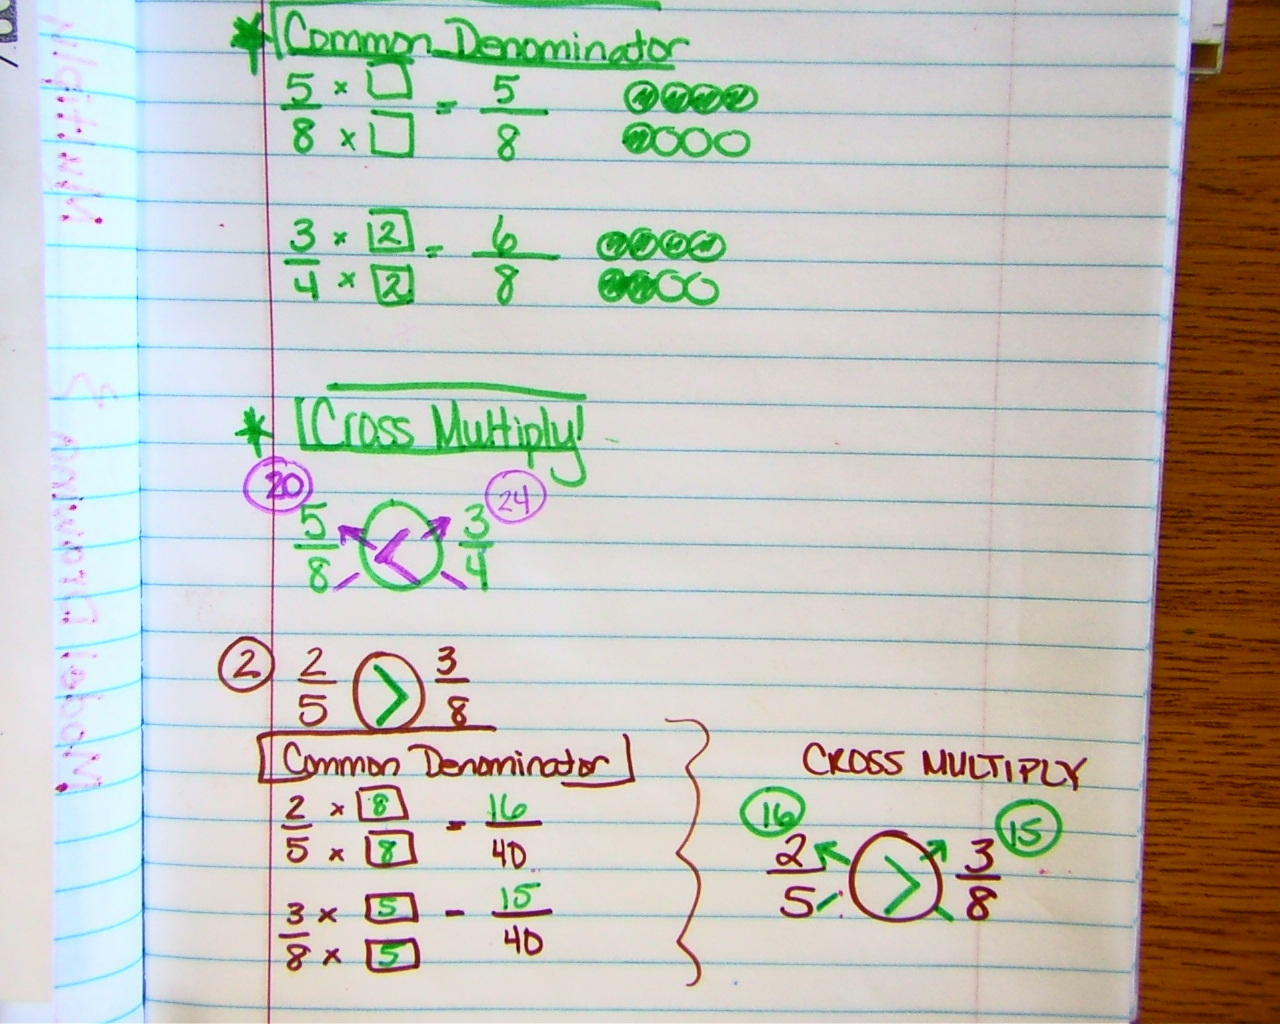 * Common Denominator
5/8 × □/□ = 5/8
3/4 × 2/2 = 6/8
* Cross Multiply!
20 24
5/8 < 3/4
2 2/5 > 3/8
Common Denominator
2/5 × 8/8 = 16/40
3/8 × 5/5 = 15/40
CROSS MULTIPLY
16 15
2/5 > 3/8